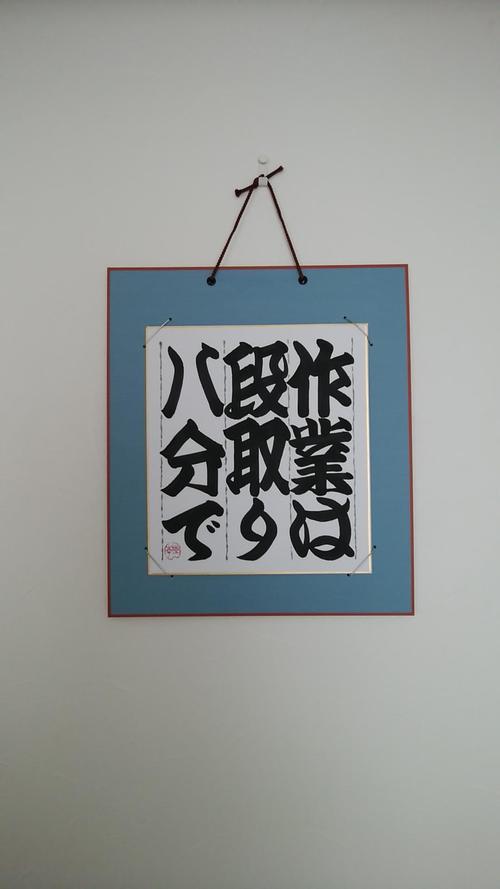 作業は
段取り
八分で